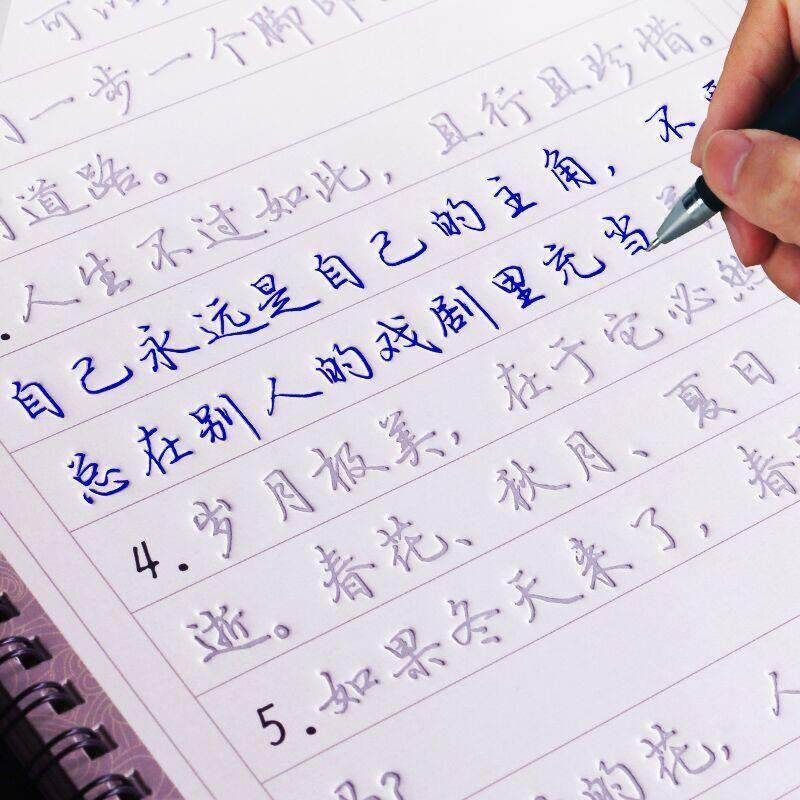 一步一个脚印
道路。
.人生不过如此，且行且珍惜。
自己永远是自己的主角，不
总在别人的戏剧里充当
4.岁月极美，在于它必然
逝。春花、秋月、夏日
5.如果冬天来了，春
的花，人